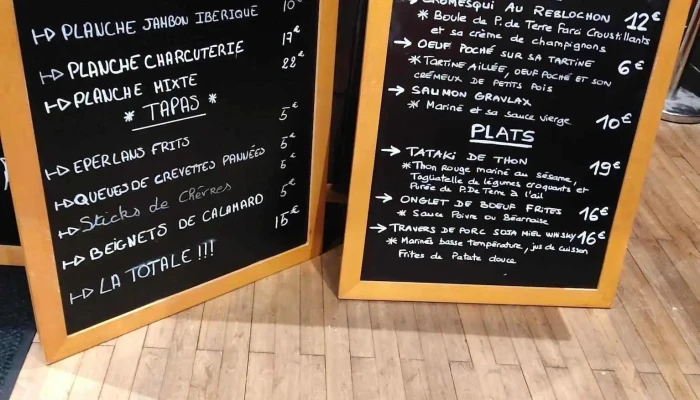 ↦ PLANCHE JAMBON IBERIQUE
↦ PLANCHE CHARCUTERIE 17€
↦ PLANCHE MIXTE 22€
* TAPAS *
↦ EPERLANS FRITS 5€
↦ QUEUES DE CREVETTES PANNÉES 5€
↦ Sticks de Chèvres 5€
↦ BEIGNETS DE CALAMARD 5€
↦ LA TOTALE !!! 15€
→ CROMESQUI AU REBLOCHON 12€
* Boule de P. de Terre Farci Croustillants
et sa crème de champignons
→ OEUF POCHÉ SUR SA TARTINE 6€
* TARTINE AILLÉE, OEUF POCHÉ ET SON
CRÉMEUX DE PETITS POIS
→ SAUMON GRAVLAX 10€
* Mariné et sa sauce vierge
PLATS
→ TATAKI DE THON 19€
* Thon Rouge mariné au sésame,
Tagliatelle de légumes croquants et
Purée de P. De Terre à l'ail
→ ONGLET DE BOEUF FRITES 16€
* Sauce Poivre ou Béarnaise
→ TRAVERS DE PORC SOJA MIEL WHISKY 16€
* Marinés basse température, jus de cuisson
Frites de Patate douce